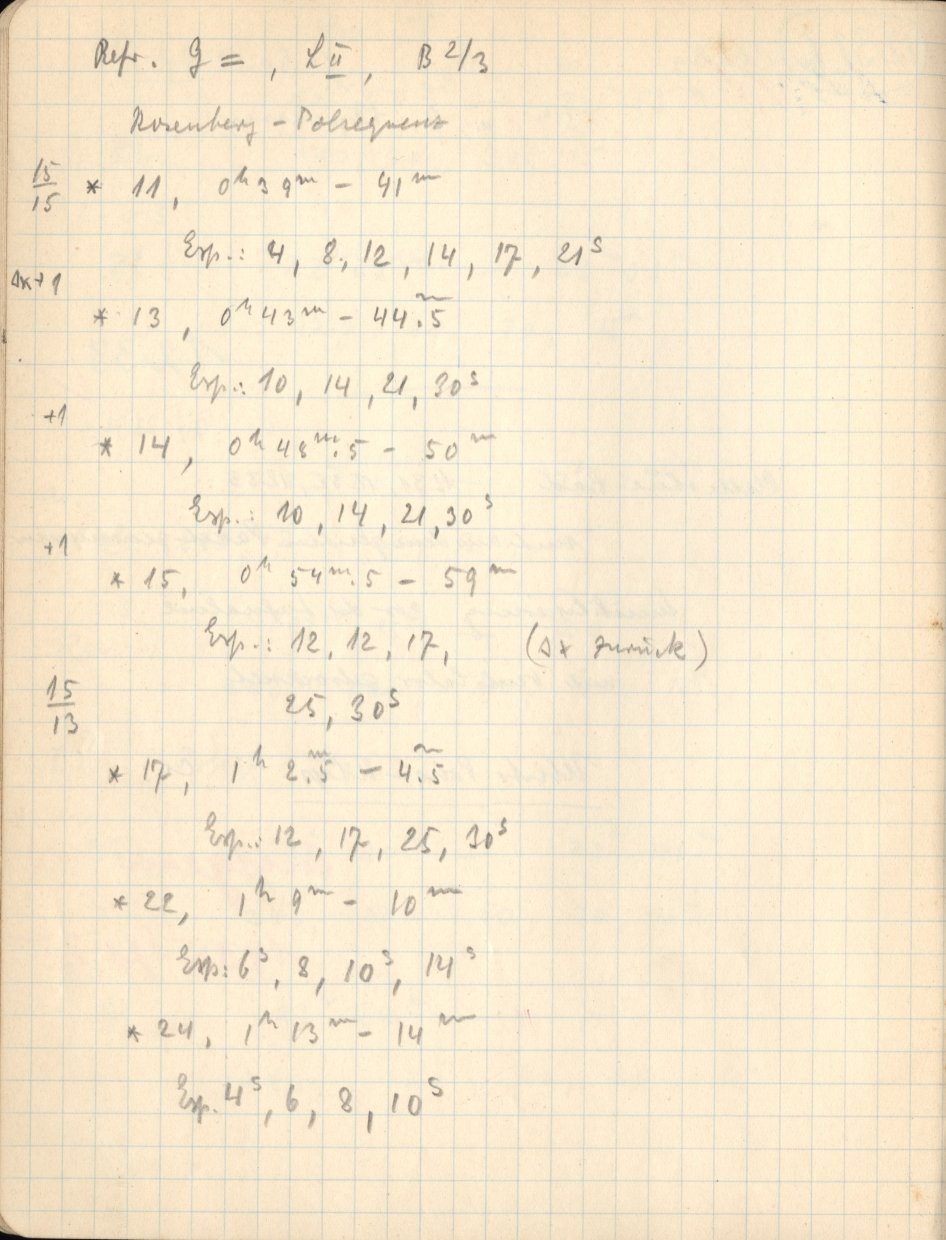 Refr. G = , L II, B 2/3
Rosenberg - Polsequenz
15/15 * 11, 0h 39m - 41m
Exp.: 4, 8, 12, 14, 17, 21s
Δx+1
* 13, 0h 43m - 44m.5
Exp.: 10, 14, 21, 30s
+1
* 14, 0h 48m.5 - 50m
Exp.: 10, 14, 21, 30s
+1
* 15, 0h 54m.5 - 59m
Exp.: 12, 12, 17, (Δx zurück)
15/13 25, 30s
* 17, 1h 2m.5 - 4m.5
Exp.: 12, 17, 25, 30s
* 22, 1h 9m - 10m
Exp: 6s, 8, 10s, 14s
* 24, 1h 13m - 14m
Exp. 4s, 6, 8, 10s